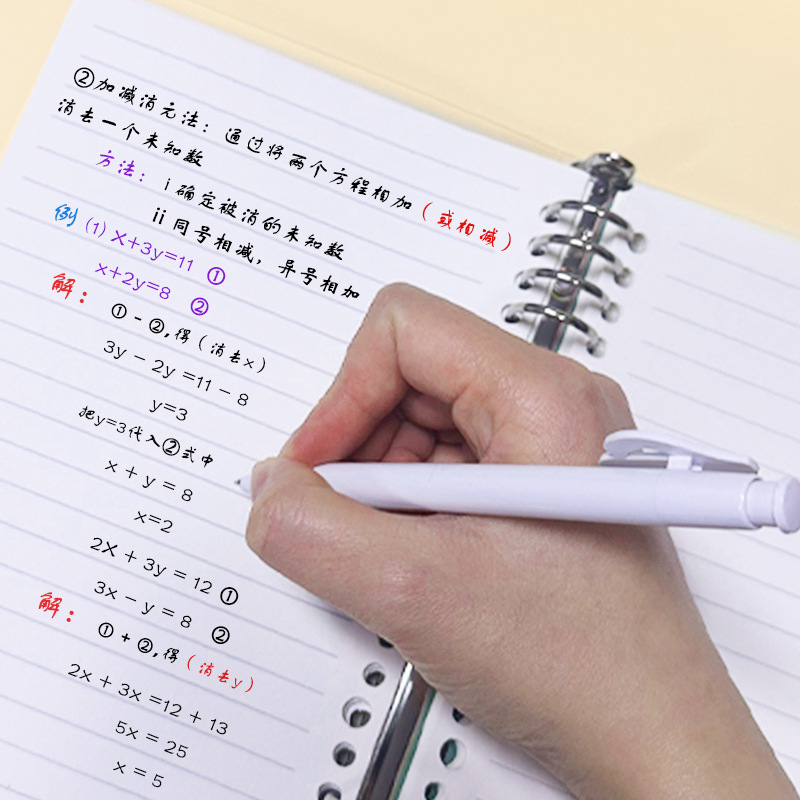 ②加减消元法：通过将两个方程相加（或相减）
消去一个未知数
方法：i 确定被消的未知数
ii 同号相减，异号相加
例 (1) X+3y=11 ①
x+2y=8 ②
解：
①-②,得（消去x）
3y-2y=11-8
y=3
把y=3代入②式中
x+y=8
x=2
2X+3y=12 ①
3x-y=8 ②
解：
①+②,得（消去y）
2x+3x=12+13
5x=25
x=5